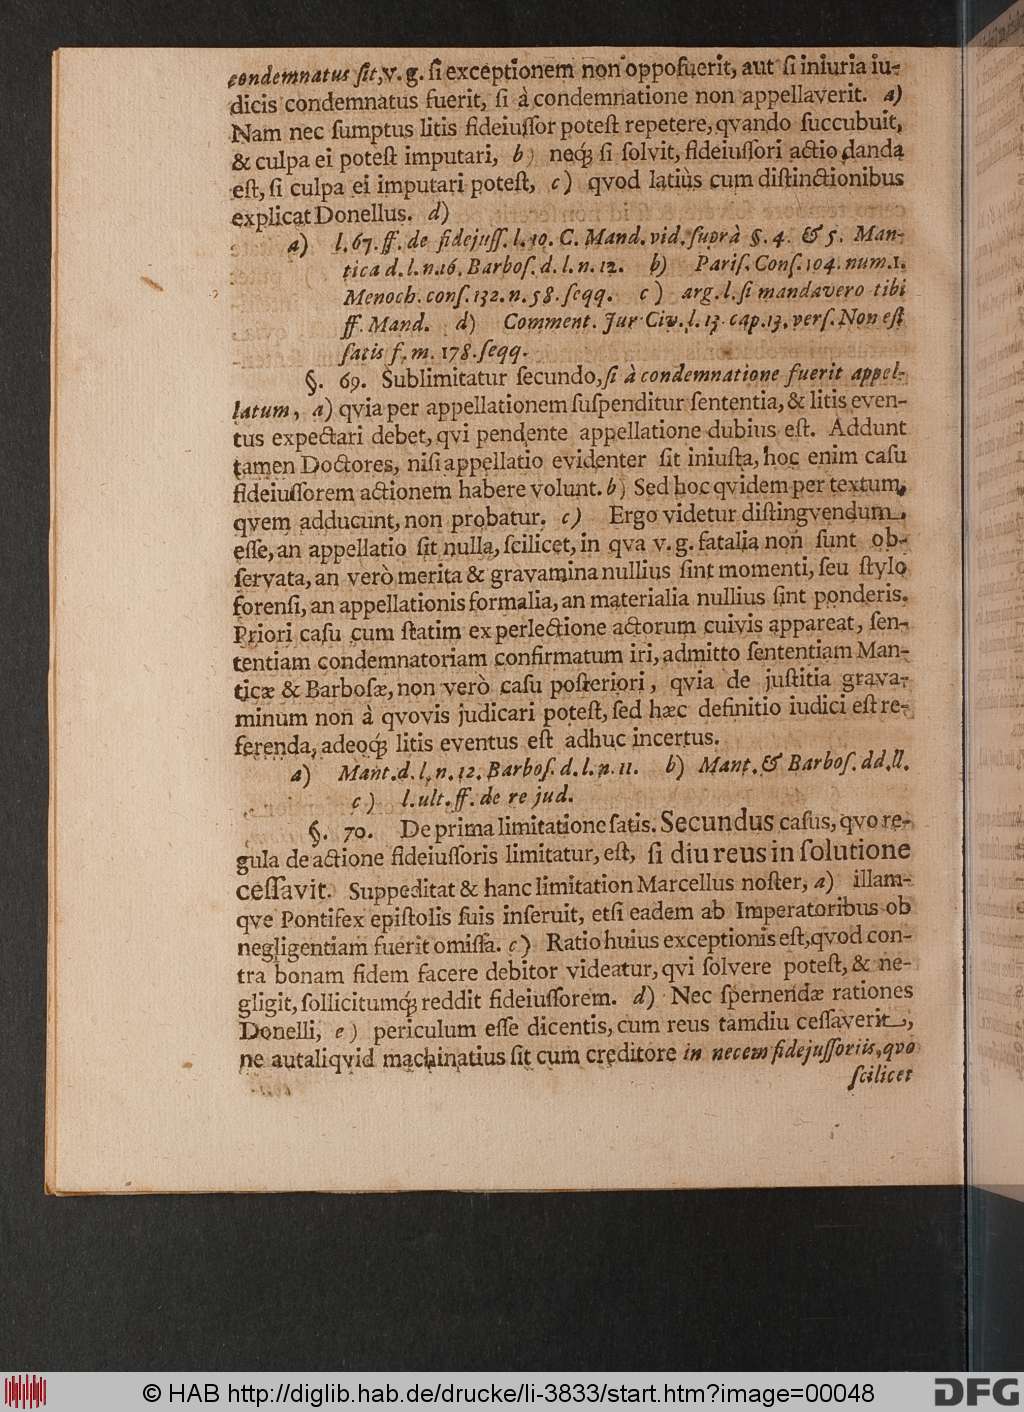 condemnatus ſit, v. g. ſi exceptionem non oppoſuerit, aut ſi iniuria iu-
dicis condemnatus fuerit, ſi à condemnatione non appellaverit. a)
Nam nec ſumptus litis fideiuſſor poteſt repetere, qvando ſuccubuit,
& culpa ei poteſt imputari, b) neqꝫ ſi ſolvit, fideiuſſori actio danda
eſt, ſi culpa ei imputari poteſt, c) qvod latiùs cum diſtinctionibus
explicat Donellus. d)
a) l. 67. ff. de fidejuſſ. l. 10. C. Mand. vid. ſuprà §. 4. & 5. Man-
tica d. l. n. 16. Barboſ. d. l. n. 12. b) Pariſ. Conſ. 104. num. 1.
Menoch. conſ. 132. n. 58. ſeqq. c) arg. l. ſi mandavero tibi
ff. Mand. d) Comment. Jur Civ. l. 13. cap. 13. verſ. Non eſt
ſatis f. m. 178. ſeqq.
§. 69. Sublimitatur ſecundo, ſi à condemnatione fuerit appel-
latum, a) qvia per appellationem ſuſpenditur ſententia, & litis even-
tus expectari debet, qvi pendente appellatione dubius eſt. Addunt
tamen Doctores, niſi appellatio evidenter ſit iniuſta, hoc enim caſu
fideiuſſorem actionem habere volunt. b) Sed hoc qvidem per textum,
qvem adducunt, non probatur. c) Ergo videtur diſtingvendum
eſſe, an appellatio ſit nulla, ſcilicet, in qva v. g. fatalia non ſunt ob-
ſervata, an verò merita & gravamina nullius ſint momenti, ſeu ſtylo
forenſi, an appellationis formalia, an materialia nullius ſint ponderis.
Priori caſu cum ſtatim ex perlectione actorum cuivis appareat, ſen-
tentiam condemnatoriam confirmatum iri, admitto ſententiam Man-
ticæ & Barboſæ, non verò caſu poſteriori, qvia de juſtitia grava-
minum non à qvovis judicari poteſt, ſed hæc definitio iudici eſt re-
ferenda, adeoqꝫ litis eventus eſt adhuc incertus.
a) Mant. d. l. n. 12. Barboſ. d. l. n. 11. b) Mant. & Barboſ. dd. ll.
c) l. ult. ff. de re jud.
§. 70. De prima limitatione ſatis. Secundus caſus, qvo re-
gula de actione fideiuſſoris limitatur, eſt, ſi diu reus in ſolutione
ceſſavit. Suppeditat & hanc limitation Marcellus noſter, a) illam-
qve Pontifex epiſtolis ſuis inſeruit, etſi eadem ab Imperatoribus ob
negligentiam fuerit omiſſa. c) Ratio huius exceptionis eſt, qvod con-
tra bonam fidem facere debitor videatur, qvi ſolvere poteſt, & ne-
gligit, ſollicitumqꝫ reddit fideiuſſorem. d) Nec ſpernendæ rationes
Donelli, e) periculum eſſe dicentis, cum reus tamdiu ceſſaverit,
ne autaliqvid machinatius ſit cum creditore in necem fidejuſſoriis, qvo
ſcilicet
© HAB http://diglib.hab.de/drucke/li-3833/start.htm?image=00048
DFG